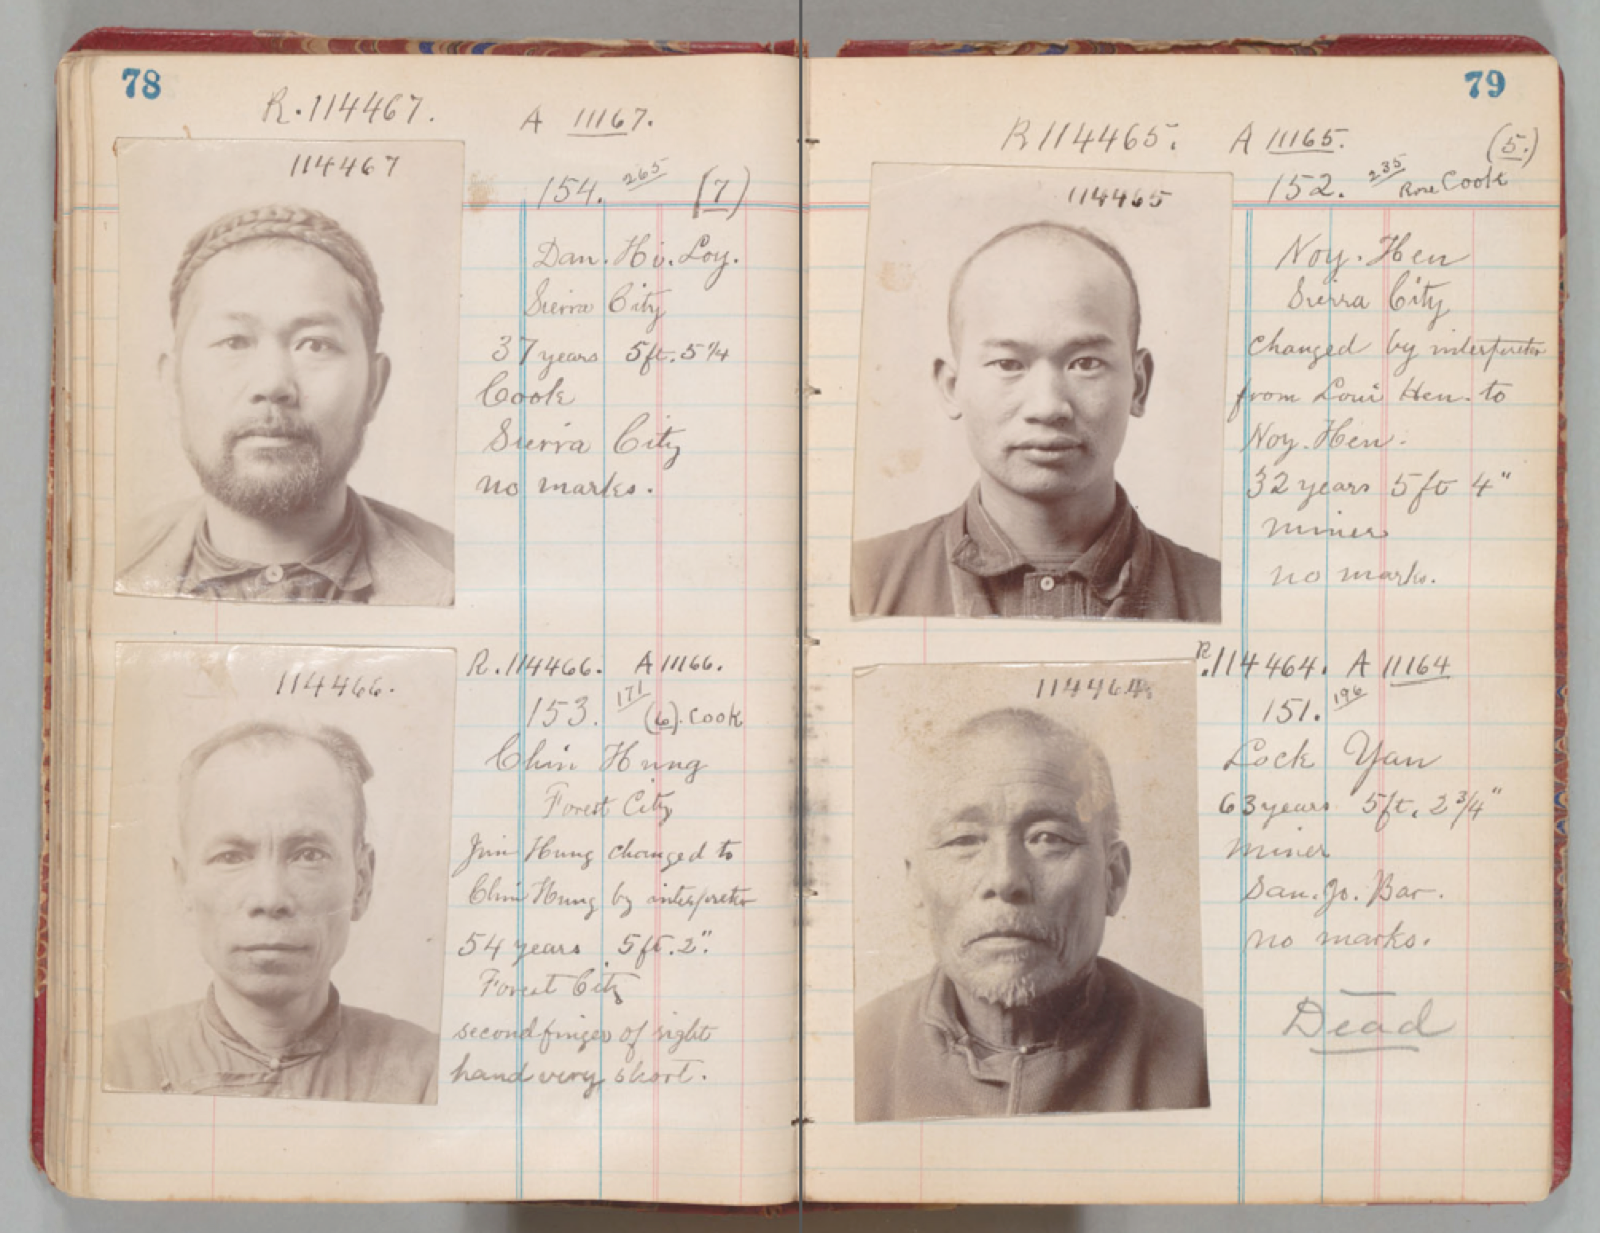 78
R.114467.
A 11167.
114467
154. 265 (7)
Dan. Hi. Loy.
Sierra City
37 years 5ft. 5 1/4
Cook
Sierra City
no marks.
R.114466. A 11166.
114466.
153. 171 (6). Cook
Chin Hung
Forest City
Jim Hung changed to
Chin Hung by interpreter
54 years 5ft. 2".
Forest City
second finger of right
hand very short.
79
R 114465. A 11165. (5.)
114465
152. 235 Cook
Noy. Hen
Sierra City
changed by interpreter
from Loui Hen. to
Noy. Hen.
32 years 5ft 4"
miner
no marks.
R.114464. A 11164
114464.
151. 196
Lock Yan
63 years 5ft. 2 3/4"
miner
San. Jo. Bar.
no marks.
Dead